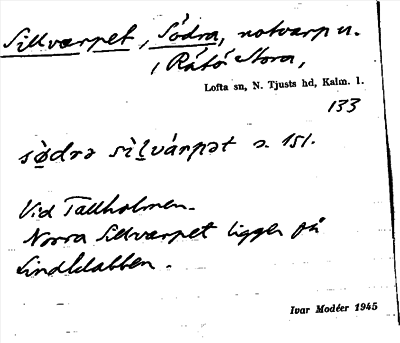 Sillvarpet, Södra, notvarp u.
, Råtö Stora,
Lofta sn, N. Tjusts hd, Kalm. l.
133
sø̀drə sìlvárpət s. 151.
Vid Tallholmen.
Norra Sillvarpet ligger på
Lindklabben.
Ivar Modéer 1945